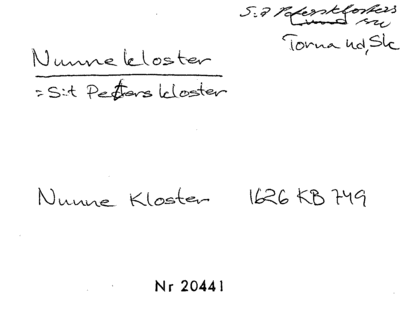 S:t Peterskloster
Torna hd, Sk
Nunnekloster
= S:t Peters kloster
Nunne Kloster 1626 KB 749
Nr 20441